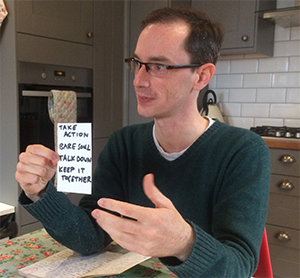 TAKE
ACTION
BARE SOUL
TALK DOWN
KEEP IT
TOGETHER